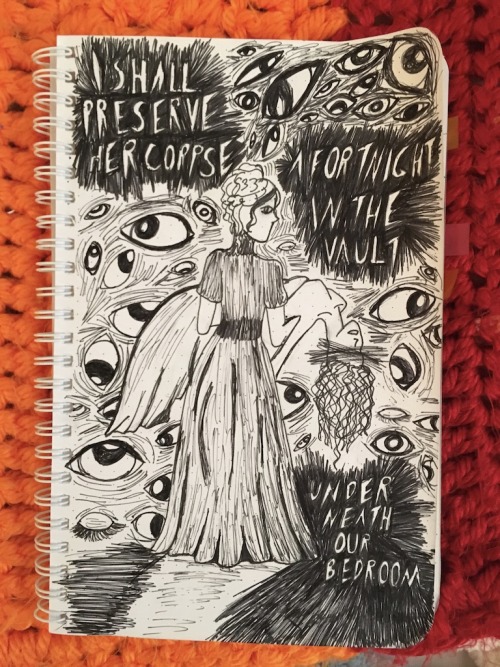 I SHALL
PRESERVE
HER CORPSE
A FORTNIGHT
IN THE
VAULT
UNDER
NEATH
OUR
BEDROOM